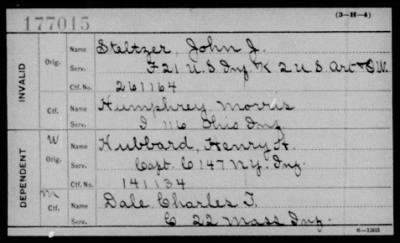 177015
(3-H-4)
INVALID
Orig.
Name Steltzer, John J.
Serv. F 21 U.S. Inf K 2 U.S. Art
Ctf. No. 261164
Ctf.
Name Humphrey, Morris
Serv. I 116 Ohio Inf
DEPENDENT
W
Orig.
Name Hubbard, Henry A.
Serv. Capt. C 147 N.Y. Inf.
Ctf. No. 141134
m
Ctf.
Name Dale Charles T.
Serv. C 22 Mass Inf.